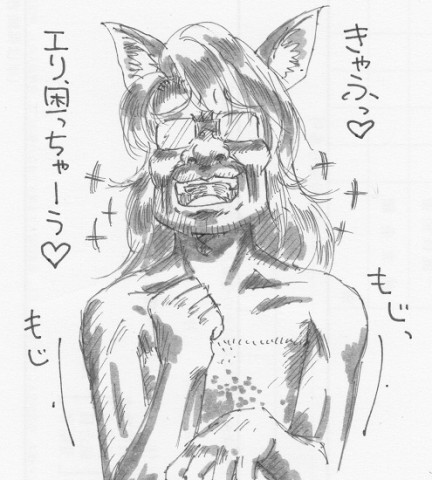 きゃふっ♡
エリ、困っちゃーう♡
もじ、
もじ